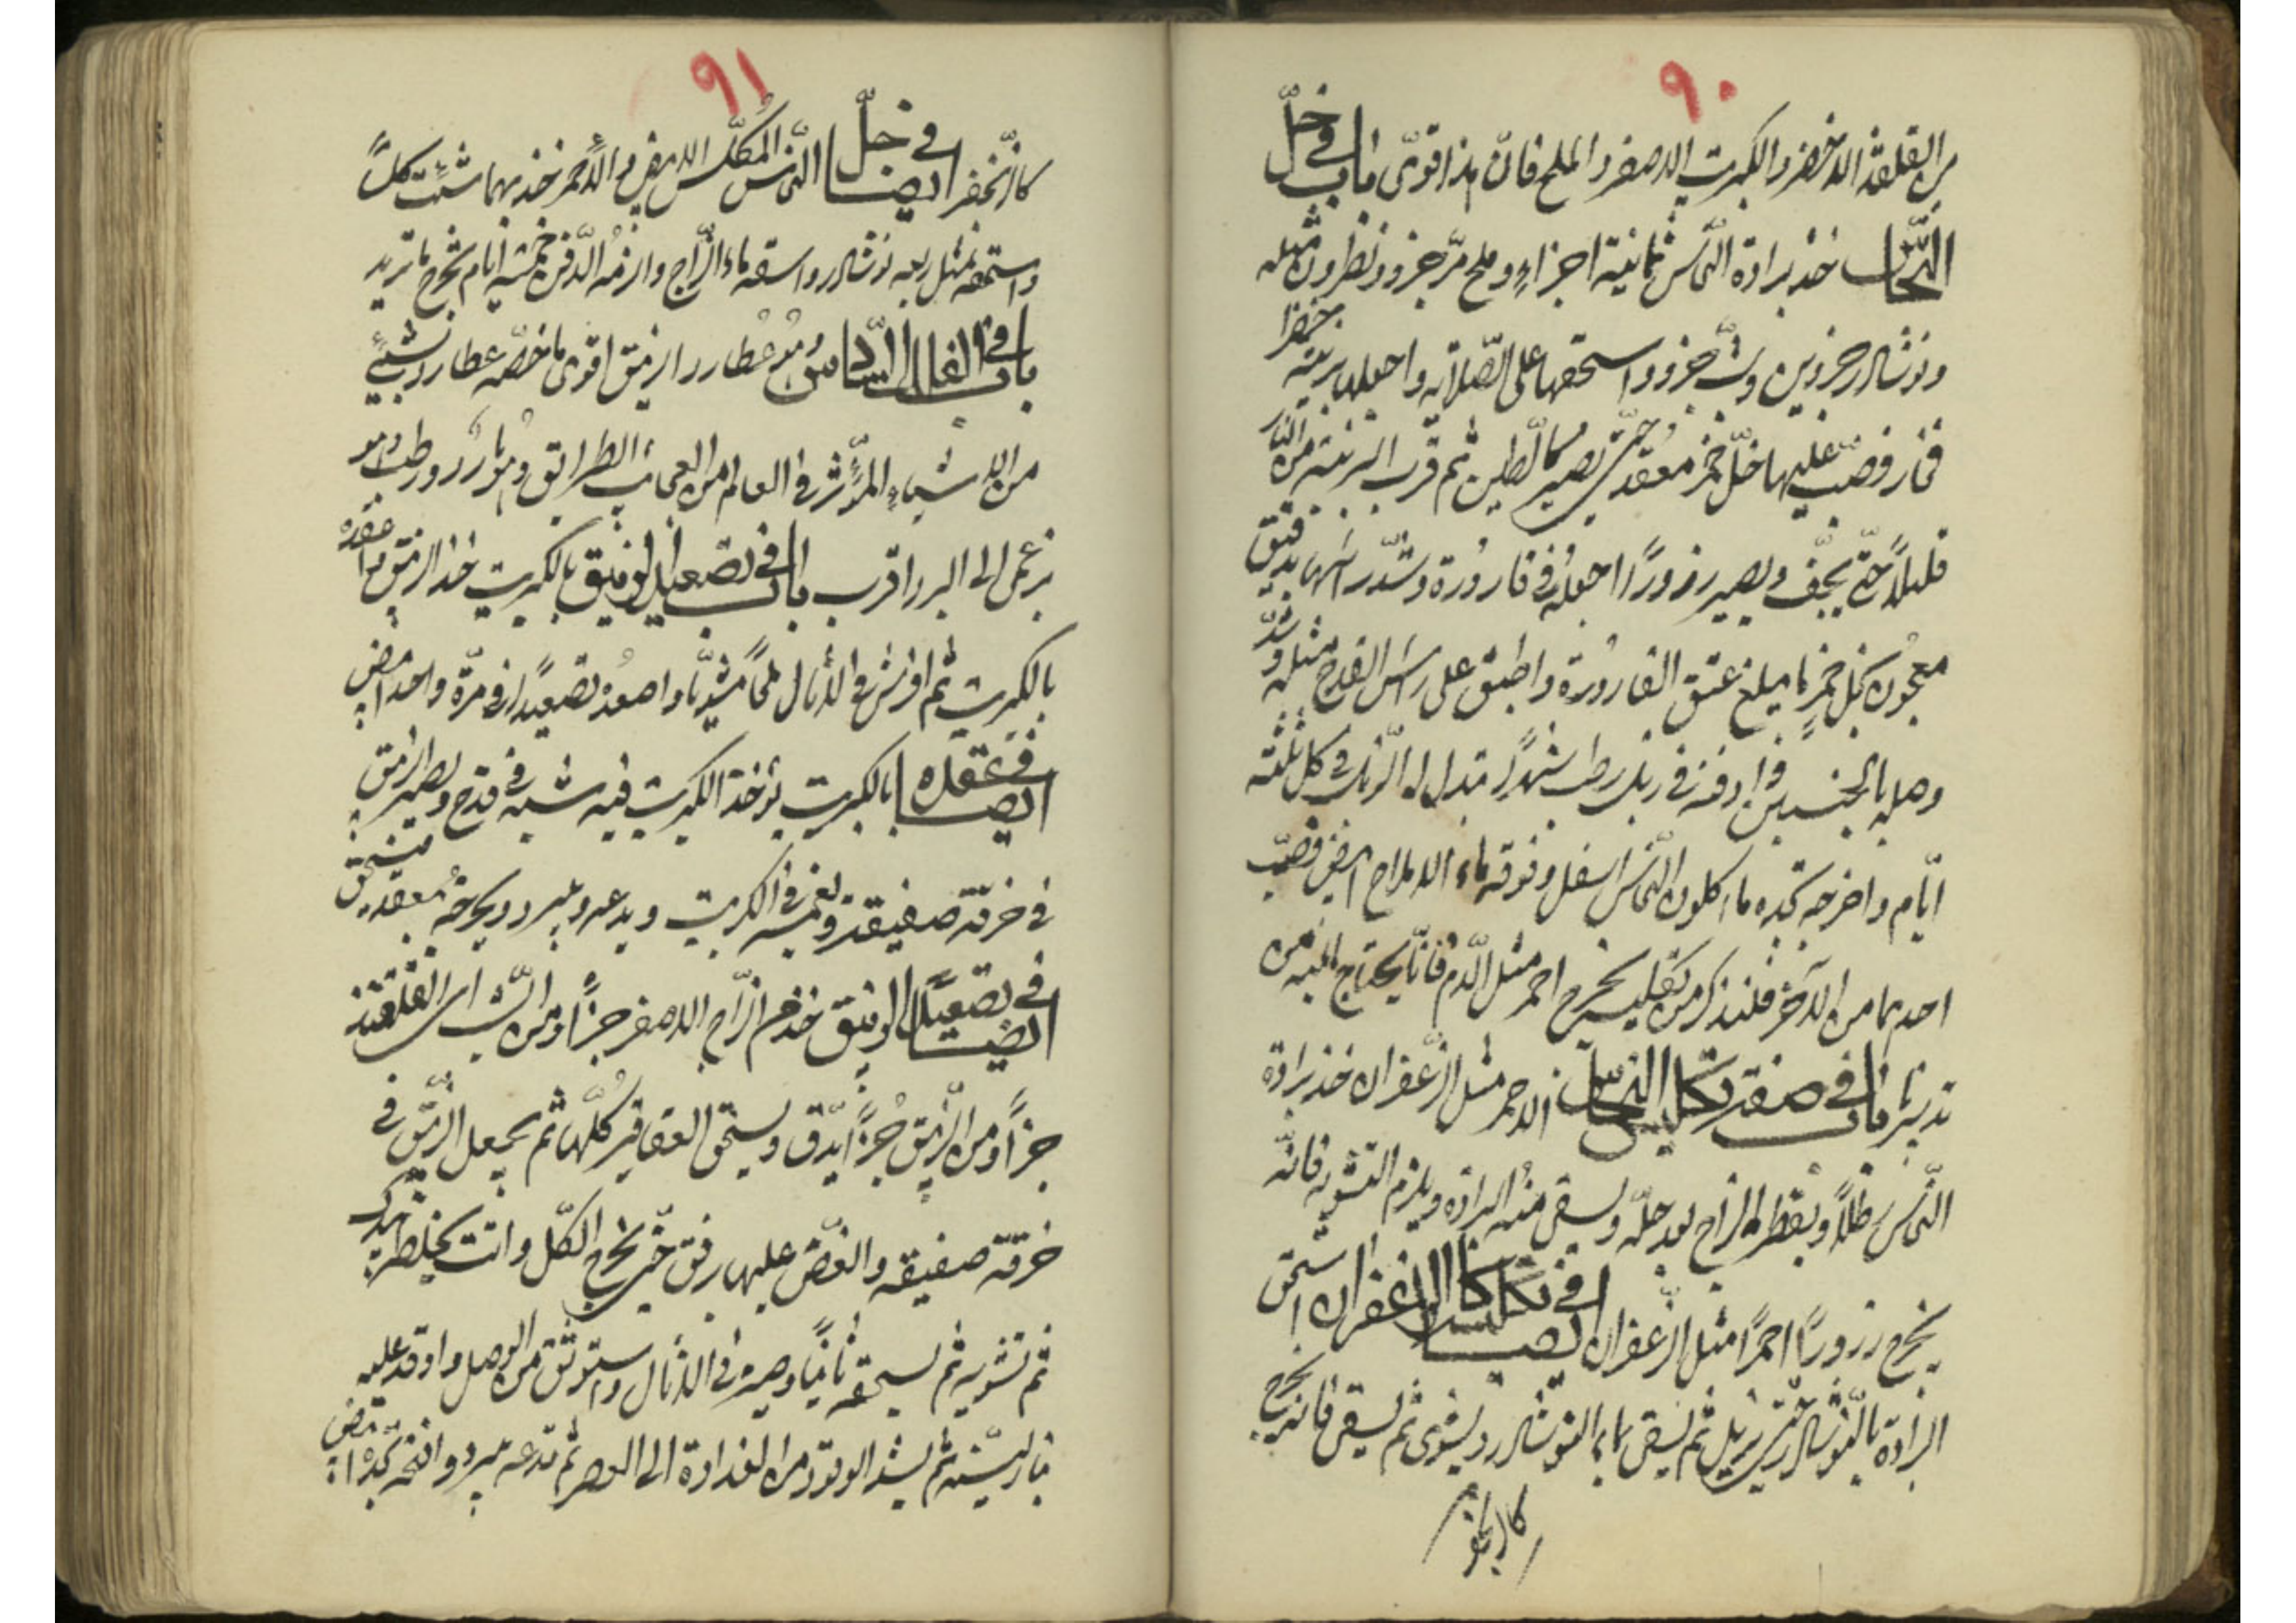 ٩٠
من القلقند الاخضر والكبريت الاصفر والملح فان هذا اقوى باب في حلّ
النّحاس خذ برادة النّحاس ثمانية اجزاءٍ وملح مرّ جزو ونطرون مثله
ونوشادر جزوين وشبّ جزو واسحقها على الصّلاية واجعلها برنيّة خضرا
فخار وصبّ عليها خلّ خمر معقد حتّى يصير كالطين ثم قرّب البرنية من النار
قليلاً حتّى يجفّ ويصير زروراً اجعلهُ في قارورة وشدّ راسها بدقيق
معجون بخل خمرٍ ما يبلغ عنق القارورة واطبق على راس القدح مثله وشدّ
وصله بالجبسين وادفنه في زبل رطب شهراً تبدل له الزبل في كل ثلثة
ايّام واخرجه تجده ماء كلون النّحاس اسفل وفوقه ماء الاملاح ابيض فصبّ
احدهما من الآخر فلنذكر من تكليسه يخرج احمر مثل الدّم فانّا يحتاج اليه من
تدبيرنا باب في صفة تكليس النّحاس الاحمر مثل الزّعفران خذ برادة
النّحاس رطلاً ويقطر الزاج بعد حلّه ويسقى منهُ البرادة ويلزم التشويه فانّه
يخرج زروراً احمرًا مثل الزّعفران ايضا في تكليس كالزعفران اسحق
البرادة بالنّوشادر حتّى يزبل ثم يسقى بماء النوشادر ويشوى ثم يسقى فانه يخرج
كالزنجفر
٩١
كالزّنجفر ايضا في حلّ النّحاس المُكلّس الابيض والاحمر خذ بهما شئت كلاً
واسحقه بمثل ربعه نوشادر واسقه ماء الزّاج والزمهُ الدّفن خمسة ايام يخرج ما تريد
باب في القال السّادس وهو عُطارد الزيبق اقوى ما خصّه عطارد بشيءٍ
من الاشياءِ المؤثر في العالم من العجائب الطرائق وهو بارد رطب وهو
الى البرد اقرب باب في تصعيد الزيبق بالكبريت خذ الزيبق واعقده
بالكبريت ثم افرش في الاثال ملحاً مشويّا واصعدهُ تصعيداً في مرّة واحدة ابيض
ايضا في عقده بالكبريت يؤخذ الكبريت فيه شبه في قدح ويصير الزيبق
في خرقة صفيقة ويغمسه في الكبريت ويدعه ويبرد ويخرجهُ معقد فيسحق
ايضا في تصعيد الزيبق خذ من الزّاج الاصفر جزءًا ومن الشّب اى القلقند
جزءًا ومن الزّيبق جُزءًا يدّق ويسحق العقاقير كلّها ثم يجعل الزّيبق في
خرقة صفيقه والغضّ عليها برفق حتّى يخرج الكّل وانت تخلطه بيدك
ثم تشويه ثم تسحقه ثانيًا وصيره في الاثال واستوثق من الوصل واوقد عليه
بنار ليّنه ثم يشد الوقود من الغداوة الى العصر ثم تدعه يبرد وافتحه تجده ابيض